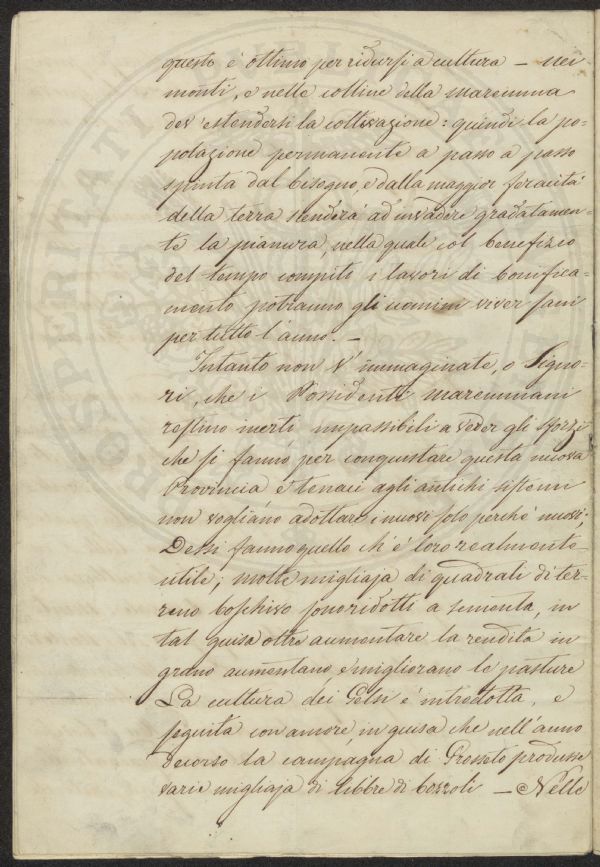 questo è ottimo per ridursi a cultura — nei
monti, e nelle colline della maremma
dev'estendersi la coltivazione: quindi la po-
polazione permanente a passo a passo
spinta dal bisogno, e dalla maggior feracità
della terra scenderà ad invadere gradatamen-
te la pianura, nella quale col benefizio
del tempo compiti i lavori di bonifica-
mento potranno gli uomini viver sani
per tutto l'anno. —
Intanto non v'immaginate, o Signo-
ri, che i Possidenti maremmani
restino inerti impassibili a veder gli sforzi
che si fanno per conquistare questa nuova
Provincia, e tenaci agli antichi sistemi
non vogliano adottare i nuovi solo perché nuovi;
Dessi fanno quello ch'è loro realmente
utile; molte migliaja di quadrati di ter-
reno boschivo sono ridotti a sementa, in
tal guisa oltre aumentare la rendita in
grano aumentano, e migliorano le pasture
La cultura dei Gelsi è introdotta, e
seguita con amore, in guisa che nell'anno
decorso la campagna di Grosseto produsse
varie migliaja di libbre di bozzoli — Nelle
PROSPERITATI